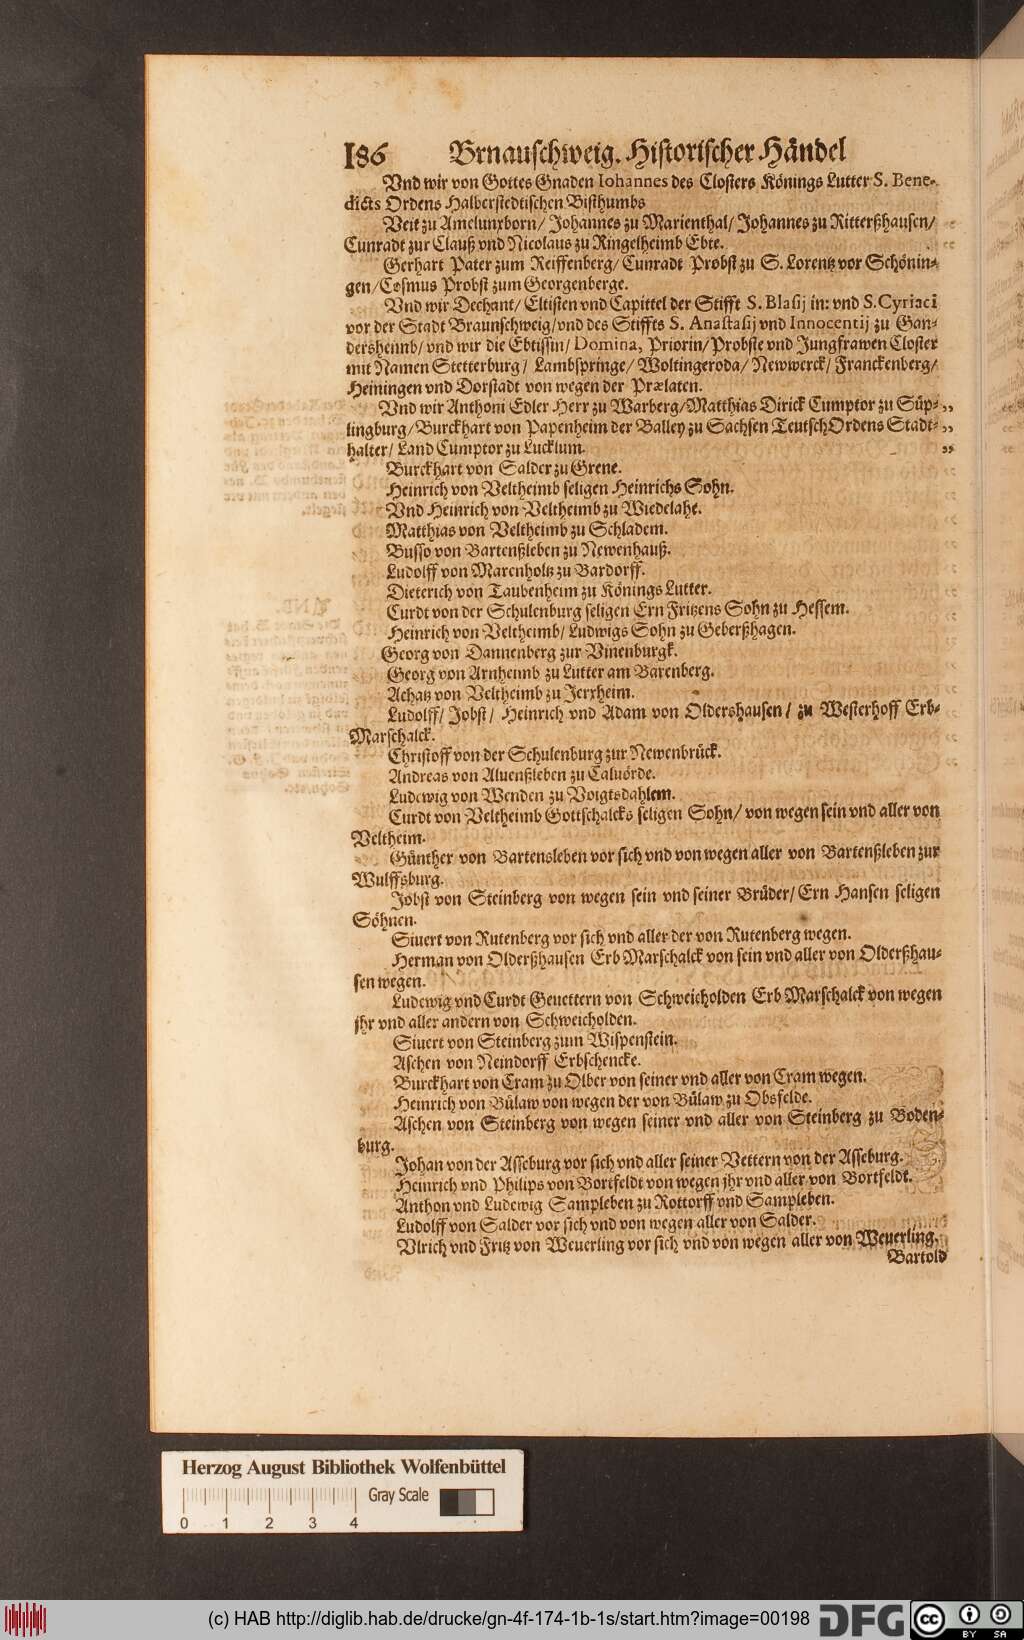 186 Brnauschweig. Historischer Händel
Vnd wir von Gottes Gnaden Iohannes des Closters Könings Lutter S. Bene-
dicts Ordens Halberstedtischen Bisthumbs
Veit zu Amelunxborn/ Johannes zu Marienthal/ Johannes zu Ritterßhausen/
Cunradt zur Clauß vnd Nicolaus zu Ringelheimb Ebte.
Gerhart Pater zum Reiffenberg/ Cunradt Probst zu S. Lorentz vor Schönin-
gen/ Cosmus Probst zum Georgenberge.
Vnd wir Dechant/ Eltisten vnd Capittel der Stifft S. Blasij in: vnd S. Cyriaci
vor der Stadt Braunschweig/ vnd des Stiffts S. Anastasij vnd Innocentij zu Gan-
dersheimb/ vnd wir die Ebtissin/ Domina, Priorin/ Probste vnd Jungfrawen Closter
mit Namen Stetterburg/ Lambspringe/ Woltingeroda/ Newwerck/ Franckenberg/
Heiningen vnd Dorstadt von wegen der Prælaten.
Vnd wir Anthoni Edler Herr zu Warberg/ Matthias Dirick Cumptor zu Süp-
lingburg/ Burckhart von Papenheim der Balley zu Sachsen TeutschOrdens Stadt-
halter/ Land Cumptor zu Lucklum.
Burckhart von Salder zu Grene.
Heinrich von Veltheimb seligen Heinrichs Sohn.
Vnd Heinrich von Veltheimb zu Wiedelahe.
Matthias von Veltheimb zu Schladem.
Busso von Bartenßleben zu Newenhauß.
Ludolff von Marenholtz zu Bardorff.
Dieterich von Taubenheim zu Könings Lutter.
Curdt von der Schulenburg seligen Ern Fritzens Sohn zu Hessem.
Heinrich von Veltheimb/ Ludwigs Sohn zu Geberßhagen.
Georg von Dannenberg zur Vinenburgk.
Georg von Arnheimb zu Lutter am Barenberg.
Achatz von Veltheimb zu Jerxheim.
Ludolff/ Jobst/ Heinrich vnd Adam von Oldershausen/ zu Westerhoff Erb-
Marschalck.
Christoff von der Schulenburg zur Newenbrück.
Andreas von Aluenßleben zu Caluörde.
Ludewig von Wenden zu Voigtsdahlem.
Curdt von Veltheimb Gottschalcks seligen Sohn/ von wegen sein vnd aller von
Veltheim.
Günther von Bartensleben vor sich vnd von wegen aller von Bartenßleben zur
Wulffsburg.
Jobst von Steinberg von wegen sein vnd seiner Brüder/ Ern Hansen seligen
Söhnen.
Siuert von Rutenberg vor sich vnd aller der von Rutenberg wegen.
Herman von Olderßhausen Erb Marschalck von sein vnd aller von Olderßhau-
sen wegen.
Ludewig vnd Curdt Geuettern von Schweicholden Erb Marschalck von wegen
jhr vnd aller andern von Schweicholden.
Siuert von Steinberg zum Wispenstein.
Aschen von Neindorff Erbschencke.
Burckhart von Cram zu Olber von seiner vnd aller von Cram wegen.
Heinrich von Bülaw von wegen der von Bülaw zu Obsfelde.
Aschen von Steinberg von wegen seiner vnd aller von Steinberg zu Boden-
burg.
Johan von der Asseburg vor sich vnd aller seiner Vettern von der Asseburg.
Heinrich vnd Philips von Bortfeldt von wegen jhr vnd aller von Bortfeldt.
Anthon vnd Ludewig Sampleben zu Rottorff vnd Sampleben.
Ludolff von Salder vor sich vnd von wegen aller von Salder.
Vlrich vnd Fritz von Weuerling vor sich vnd von wegen aller von Weuerling.
Bartold
Herzog August Bibliothek Wolfenbüttel
Gray Scale
0 1 2 3 4
(c) HAB http://diglib.hab.de/drucke/gn-4f-174-1b-1s/start.htm?image=00198 DFG cc BY SA